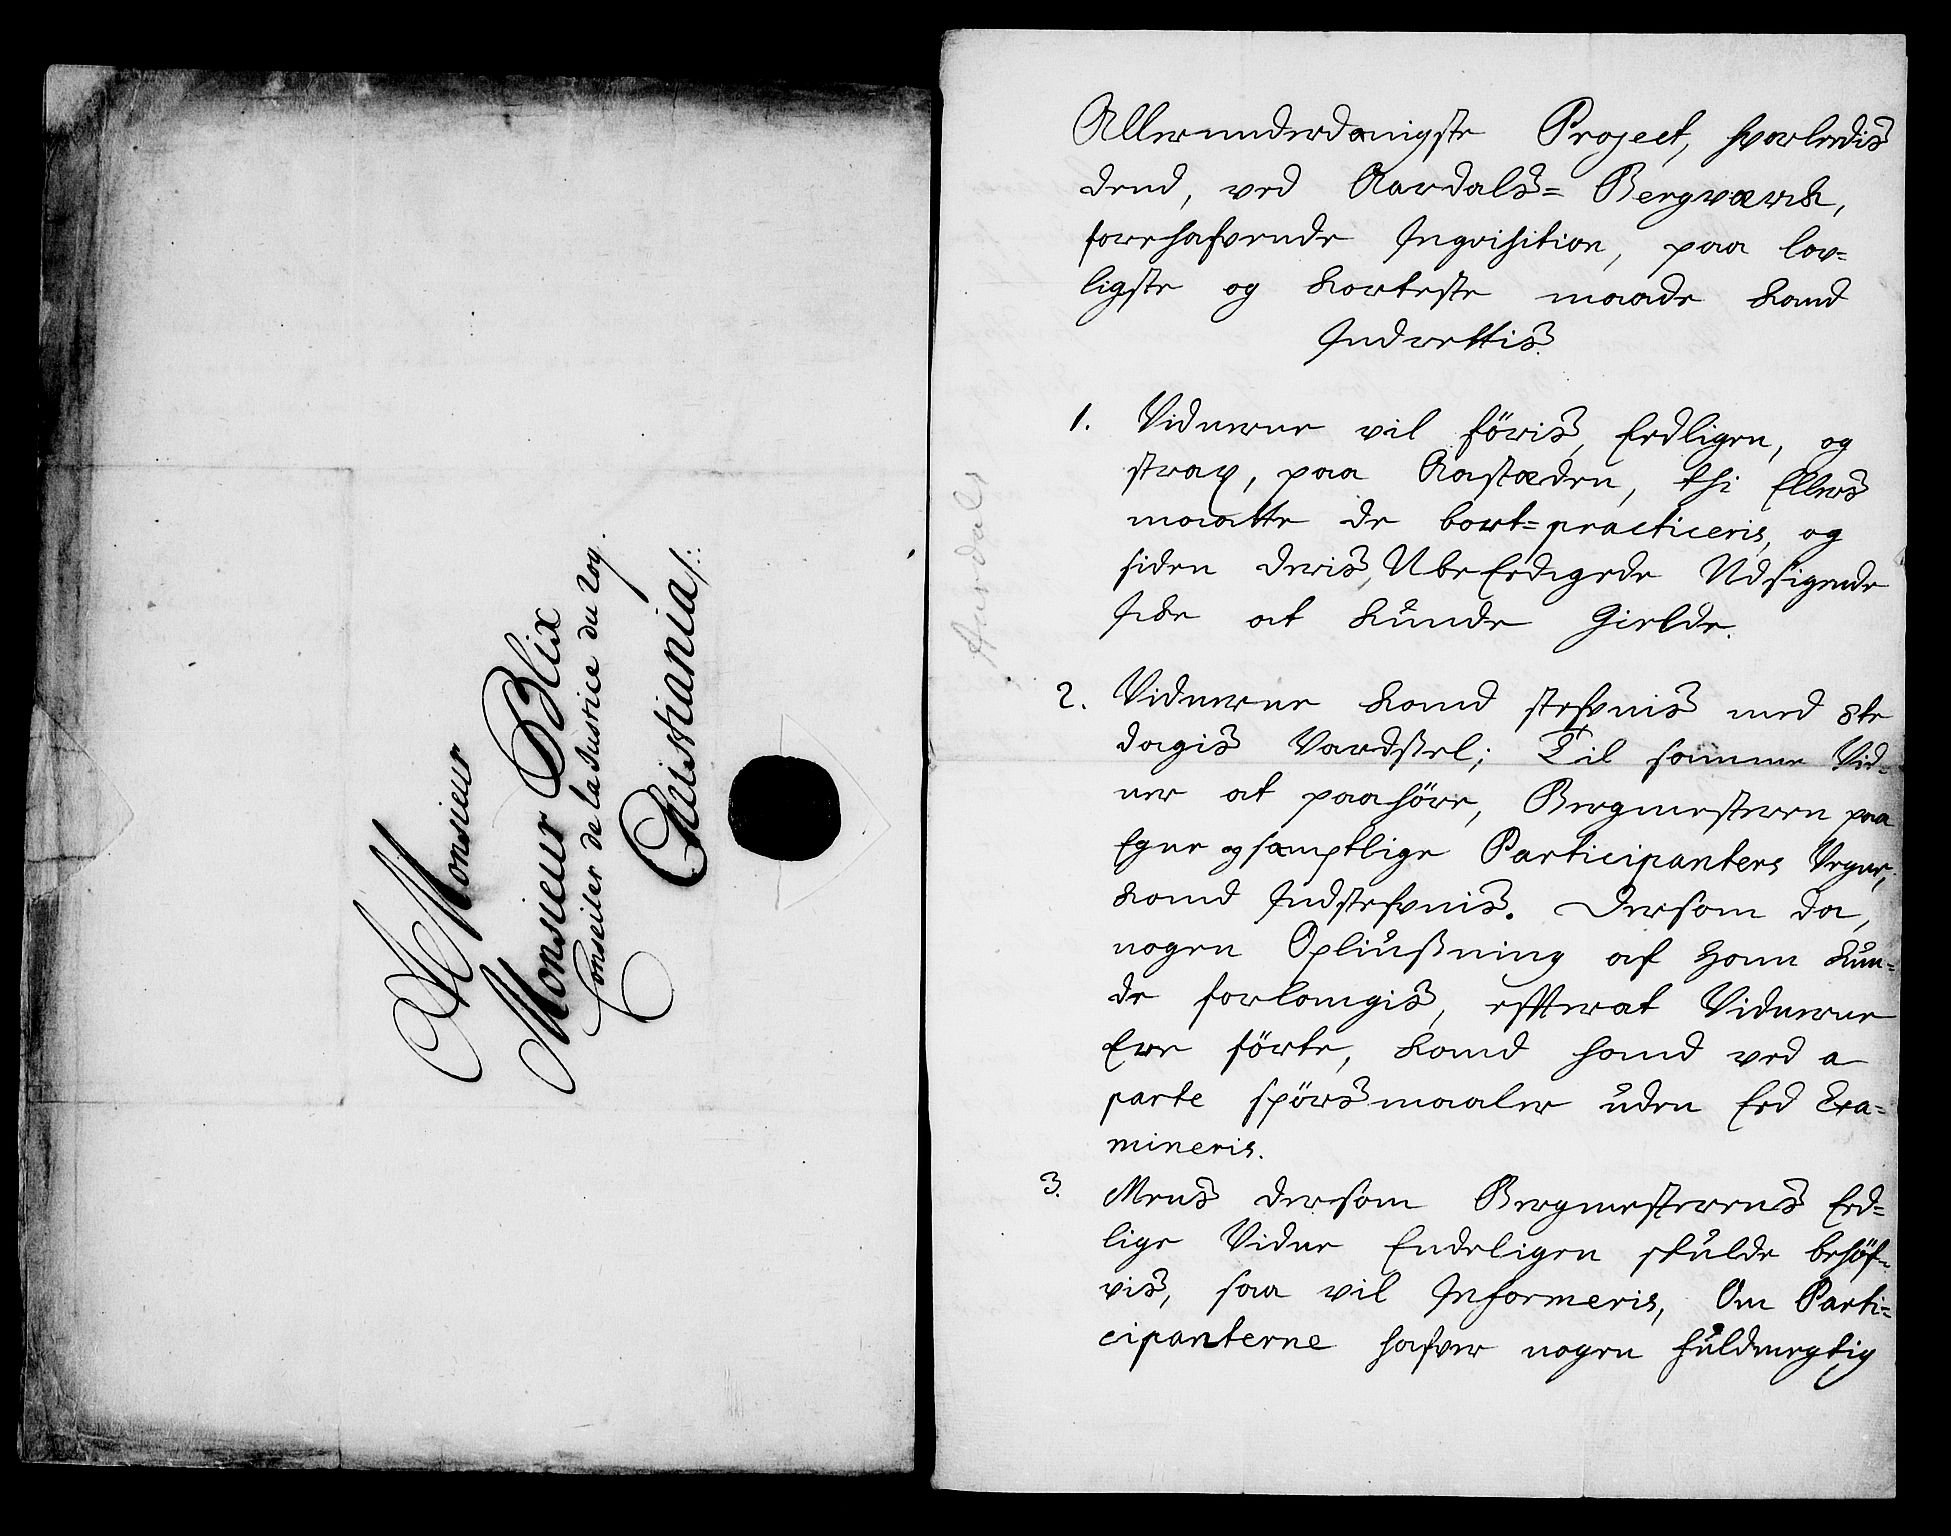 A Monsieur
Monsieur Blix
Conseiler de la Justice du Roy.
Christiania /:
Aardals
Allerunderdanigste Project, hvorledis
dend, ved Aardals= Bergværk,
forehafvende Inqvisition, paa lov=
ligste og korteste maade kand
Indrettis.
1. Vidnerne vil föris, Eedligen, og
strax, paa Aastæden, thi Ellers
maatte de bort=practiceris, og
siden deris, UbeEedigede Udsigende
Icke at kunde Gielde.
2. Vidnerne kand stefvnis med 8te
dagis Vardsel; Til samme Vid=
ner at paahöre, Bergmesteren paa
Egne og samptlige Participanters Vegne,
kand Indstefvnis. Dersom da,
nogen Opliusning af Ham kun=
de forlangis, effterat Vidnerne
Ere förte, kand hand ved a
parte spörsmaaler uden Eed Exa=
mineris.
3. Mens dersom Bergmesterens Eed=
lige Vidne Endeligen skulde behöf=
vis, saa vil Informeris, Om Parti=
cipanterne hafver nogen fuldmegtig